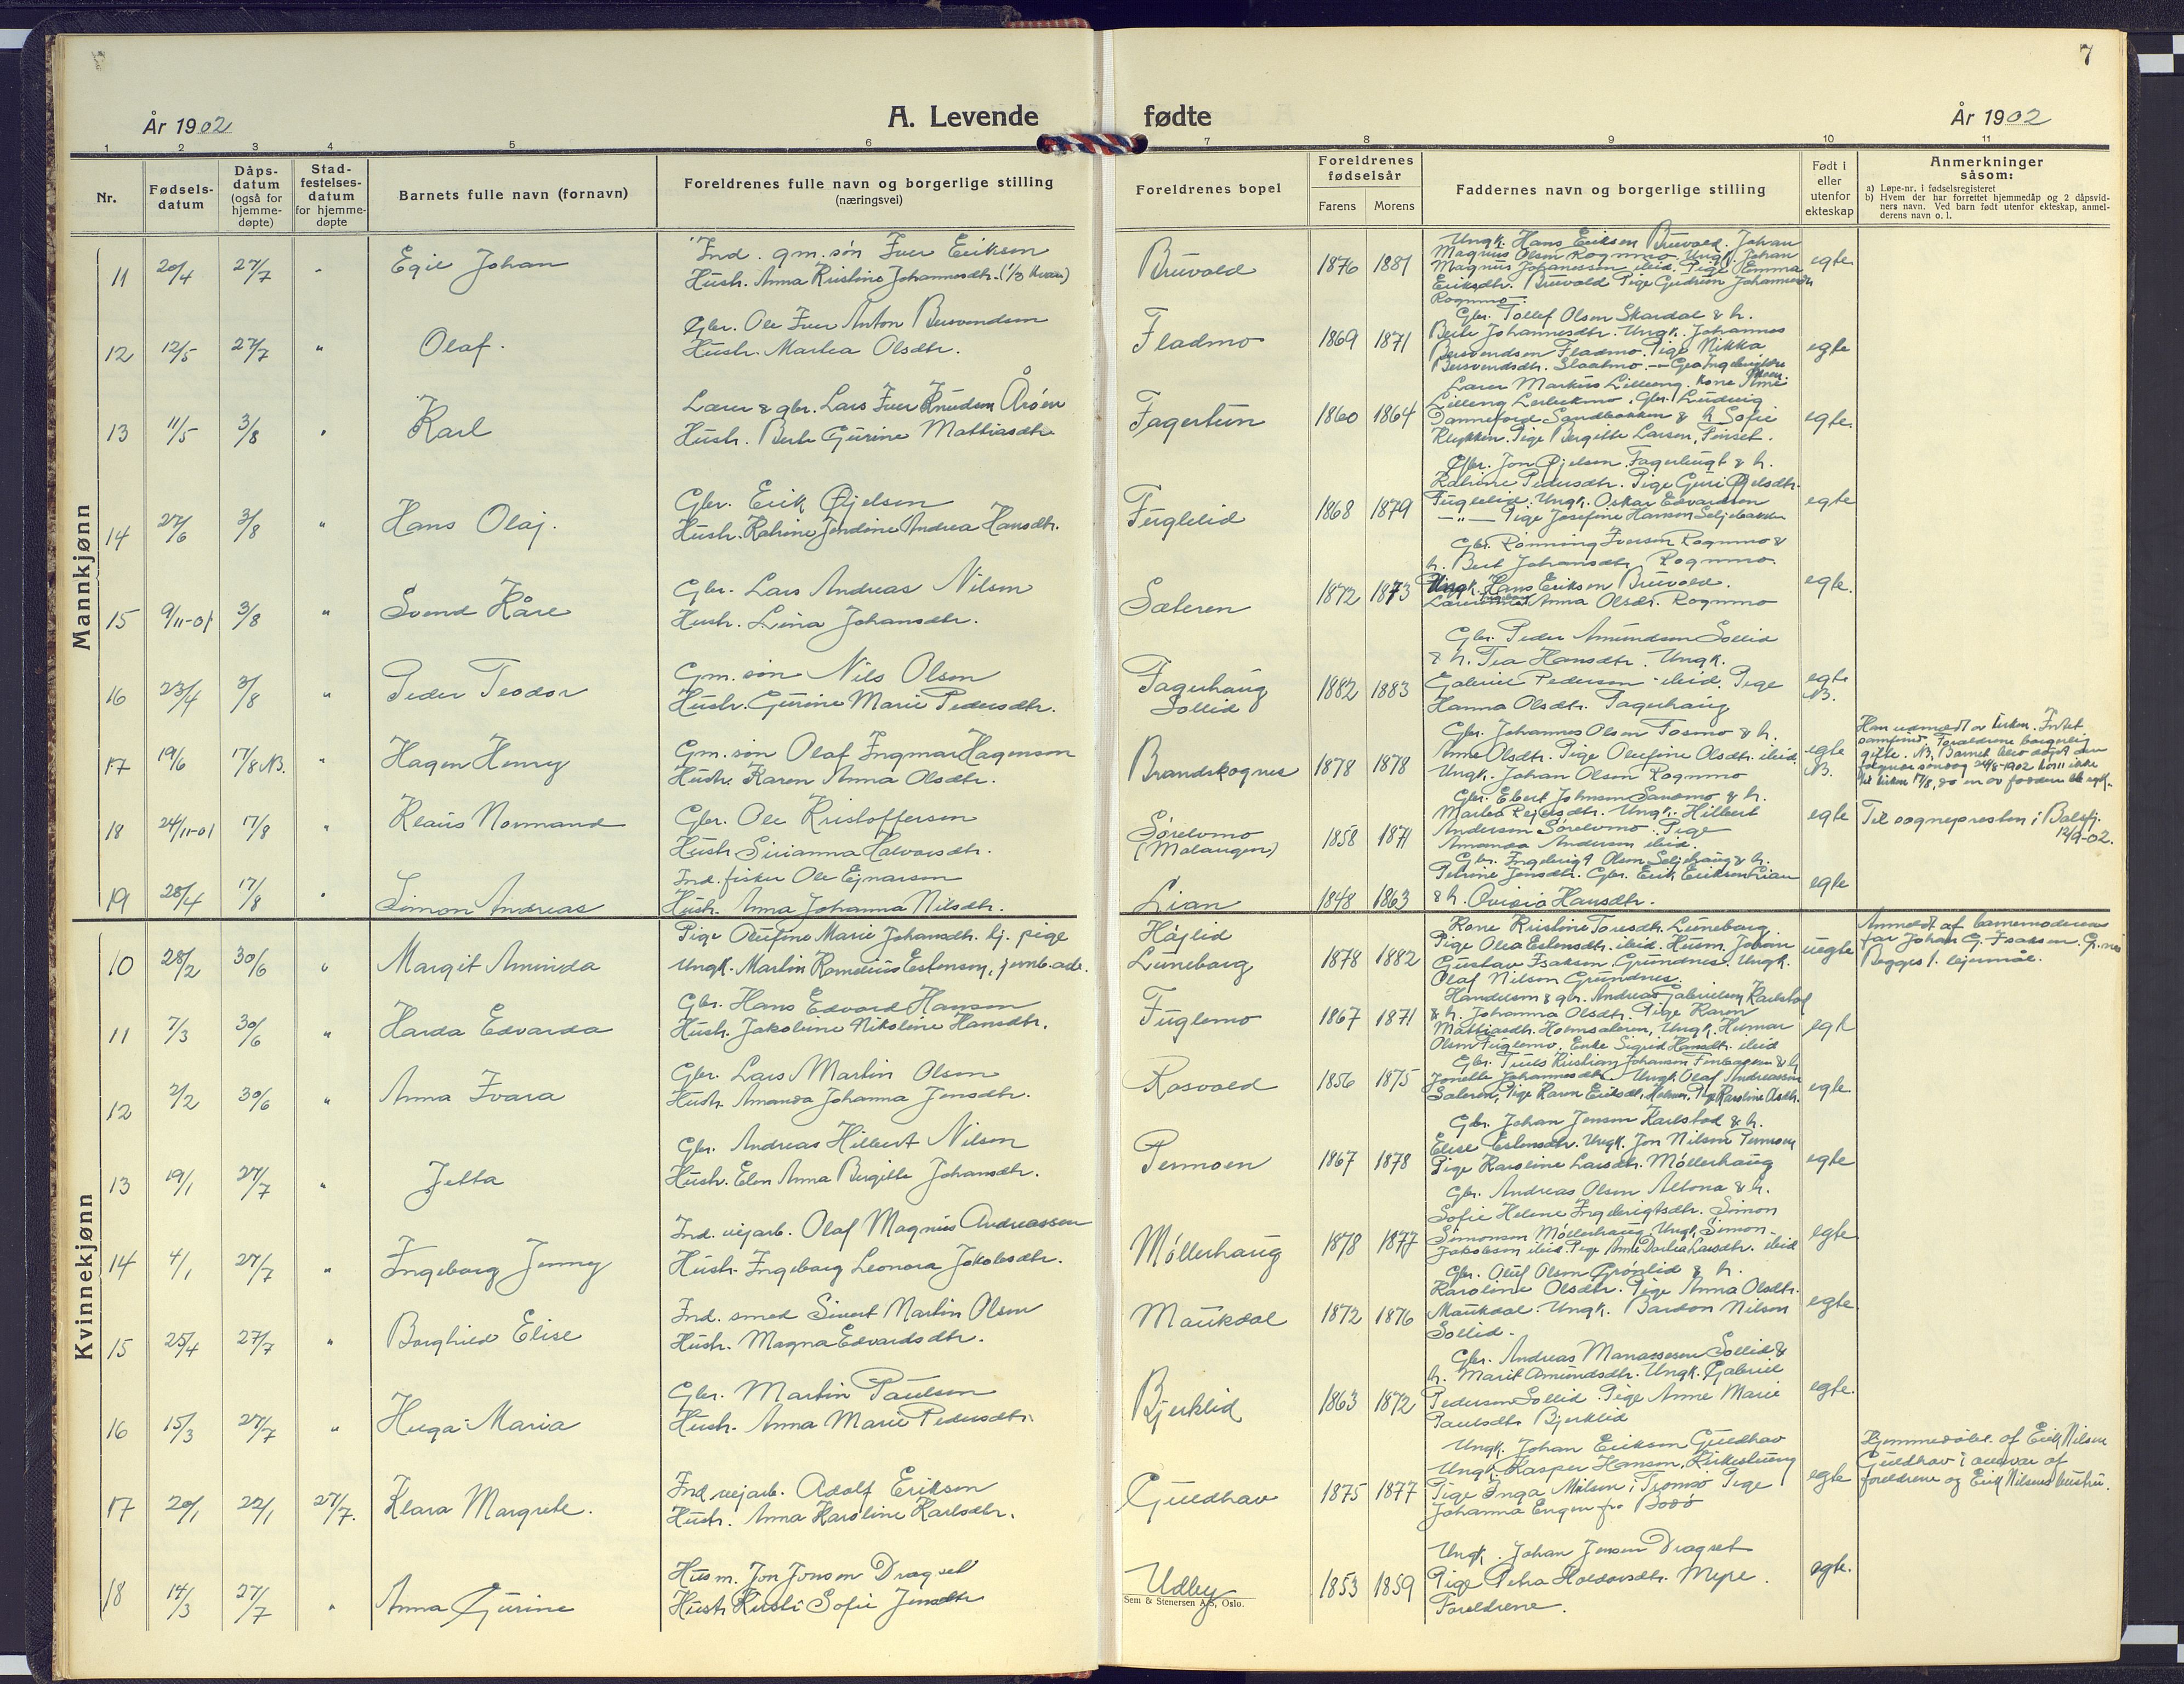 7
År 1902
A. Levende fødte
År 1902
1 2 3 4 5 6 7 8 9 10 11
Nr.
Fødsels-
datum
Dåps-
datum
(også for
hjemme-
døpte)
Stad-
festelses-
datum
for hjemme-
døpte
Barnets fulle navn (fornavn)
Foreldrenes fulle navn og borgerlige stilling
(næringsvei)
Foreldrenes bopel
Foreldrenes
fødselsår
Farens Morens
Faddernes navn og borgerlige stilling
Født i
eller
utenfor
ekteskap
Anmerkninger
såsom:
a) Løpe-nr. i fødselsregisteret
b) Hvem der har forrettet hjemmedåp og 2 dåpsvid-
ners navn. Ved barn født utenfor ekteskap, anmel-
derens navn o. l.
Mannkjønn
11 20/4 27/7 " Egil Johan
Ind. gm. søn Iver Eriksen
Hustr. Anna Kristine Johannesdtr. (1/3 kvæn)
Bruvold 1876 1881
Ungk. Hans Eriksen Bruvold. Johan
Magnus Olsen Rognmo. Ungk. Johan
Magnus Johanessen ibid. Pige Emma
Eriksdtr. Bruvold Pige Gudrun Johannesdtr
Rognmo.
egte
12 12/5 27/7 " Olaf.
Gbr. Ole Iver Anton Bersvendsen
Hustr. Martea Olsdtr.
Fladmo 1869 1871
Gbr. Tollef Olsen Skardal & h.
Berte Johannesdtr. Ungk. Johannes
Bersvendsen Fladmo. Pige Nikka
Bersvendsdtr. Slaatmo.
egte
13 11/5 3/8 " Karl
Lærer & gbr. Lars Iver Knudsen Åröen
Hustr. Berte Gurine Mattiasdtr
Fagertun 1860 1864
Lærer Markus Lilleeng. Kone Anne
Lilleeng. Gbr. Ludvig
Danneford Sandbakken & h. Sofie
Klykken. Pige Bergitte Larsen, Finset.
egte.
14 27/6 3/8 " Hans Olaj.
Gbr. Erik Øjelsen
Hustr. Katrine Jendine Andrea Hansdtr.
Fuglelid 1868 1879
Gbr. Jon Øjelsen. Fagerlugt & h.
Katrine Pedersdtr. Pige Guri Øjelsdtr.
Fuglelid. Ungk. Oskar Edvardsen
—"— Pige Josefine Hansen Seljebakken
egte
15 9/11-01 3/8 " Svend Kåre
Gbr. Lars Andreas Nilsen
Hustr. Lina Johansdtr.
Sæteren 1872 1873
Gbr. Rønning Iversen Rognmo &
h. Berit Johansdtr. Rognmo.
Ungk. Hans Eriksen Bruvold.
Anna Olsdtr. Rognmo
egte.
16 23/4 3/8 " Peder Teodor
Gm. søn Nils Olsen
Hustr. Gurine Marie Pedersdtr.
Fagerhaug
Sollid
1882 1883
Gbr. Peder Amundsen Sollid
& h. Tea Hansdtr. Ungk.
Gabriel Pedersen ibid. Pige
Hanna Olsdtr. Fagerhaug
egte
NB.
17 19/6 17/8 NB. " Hagen Henry
Gm. søn Olaf Ingmar Hagensen
Hustr. Karen Anna Olsdtr.
Brandskognes 1878 1878
Gbr. Johannes Olsen Fosmo & h.
Anne Olsdtr. Pige Olufine Olsdtr. ibid.
Ungk. Johan Olsen Rognmo
egte
NB.
Han udmeldt av kirken. Intet
samfund. Foreldrene borgerlig
gifte. NB. Barnet blev døpt den
følgende søndag 24/8-1902 kom ikke
til kirken 17/8, da en av faddere ble syk.
18 24/11-01 17/8 " Klaus Normand
Gbr. Ole Kristoffersen
Hustr. Sirianna Halvorsdtr.
Sørelvmo
(Malangen)
1858 1871
Gbr. Ebert Johnsen Sanamo & h.
Ungk. Hilbert
Andersen Sørelvmo. Pige
Amanda Andersen ibid.
egte
Til sognepresten i Balsfj.
12/9-02.
19 28/4 17/8 " Simon Andreas
Ind. fisker Ole Ejnarsen
Hustr. Anna Johanna Nilsdtr.
Lian 1848 1863
Gbr. Ingebrigt Olsen Seljehaug & h.
Petrine Jensdtr. Gbr. Erik Eriksen Lian
& h. Ovidia Hansdtr.
egte
Kvinnekjønn
10 28/2 30/6 " Margit Aminda
Pige Olufine Marie Johansdtr. tj. pige
Ungk. Martin Kornelius Estensen, jernb.arb.
Højlid
Luneborg
1878 1882
Kone Kristine Toresdtr. Luneborg
Pige Olea Estensdtr. ibid. Husm. Johan
Gustav Isaksen. Grundnes. Ungk.
Olaf Nilsen Grundnes.
uegte
Anmeldt af barnemoderens
far Johan G. Isaksen. Gr.nes
Begges 1. lejermål.
11 7/3 30/6 " Harda Edvarda
Gbr. Hans Edvard Hansen
Hustr. Jakobine Nikoline Hansdtr.
Fuglemo 1867 1871
Handelsm & gbr. Andreas Gabrielsen Karlstad
& h. Johanna Olsdtr. Pige Karen
Mattiasdtr. Holmsæteren, Ungk. Helmar
Olsen Fuglemo. Enke Sigrid Hansdtr. ibid
egte
12 2/2 30/6 " Anna Ivara
Gbr. Lars Martin Olsen
Hustr. Amanda Johanna Jensdtr.
Rosvold 1856 1875
Gbr. Truls Kristian Johansen Finbakken & h.
Jonette Johannesdtr. Ungk. Olaf Andreassen
Sæteren, Pige Karen Eriksdtr. Holmen, Pige Karoline Olsdtr.
egte
13 19/1 27/7 " Jetta
Gbr. Andreas Hilbert Nilsen
Hustr. Elen Anna Bergitte Johansdtr.
Permoen 1867 1878
Gbr. Johan Jensen Karlstad & h.
Elise Estensdtr. Ungk. Jon Nilsen Permoen
Pige Karoline Larsdtr. Møllerhaug
egte
14 4/1 27/7 " Ingeborg Jenny
Ind. vejarb. Olaf Magnus Andreassen
Hustr. Ingeborg Leonora Jakobsdtr.
Møllerhaug 1878 1877
Gbr. Andreas Olsen Altona & h.
Sofie Helene Ingebrigtsdtr. Simon
Simonsen Møllerhaug, Ungk. Simon
Jakobsen ibid. Pige Anne Dortea Larsdtr. ibid
egte
15 25/4 27/7 " Borghild Elise
Ind. smed Sivert Martin Olsen
Hustr. Magna Edvardsdtr.
Maukdal 1872 1876
Gbr. Oluf Olsen Grønlid & h.
Karoline Olsdtr. Pige Anna Olsdtr.
Maukdal. Ungk. Bardon Nilsen
Sollid.
egte
16 15/3 27/7 " Huga Maria
Gbr. Martin Paulsen
Hustr. Anna Marie Pedersdtr.
Bjerklid 1863 1872
Gbr. Andreas Manassesen Sollid &
h. Marit Amundsdtr. Ungk. Gabriel
Pedersen Sollid. Pige Anne Marie
Paulsdtr. Bjerklid
egte.
17 20/1 22/1 27/7. Klara Margrete.
Ind. vejarb. Adolf Eriksen
Hustr. Anna Karoline Karlsdtr.
Guldhav 1875 1877
Ungk. Johan Eriksen Guldhav
Ungk. Kasper Hansen, Kirkestuen
Pige Inga Nilsen i Tromsø Pige
Johanna Engen fra Bodø
egte
Hjemmedøbt af Erik Nilsen
Guldhav i overvær af
foreldrene og Erik Nilsens hustru.
18 14/3 27/7 " Anna Gurine
Husm. Jon Jonsen Dragset
Hustr. Kirsti Sofie Jensdtr
Udby 1853 1859
Ungk. Johan Jensen Dragset
Pige Petra Haldorsdtr. Myre.
Foreldrene.
egte.
Sem & Stenersen A/S, Oslo.